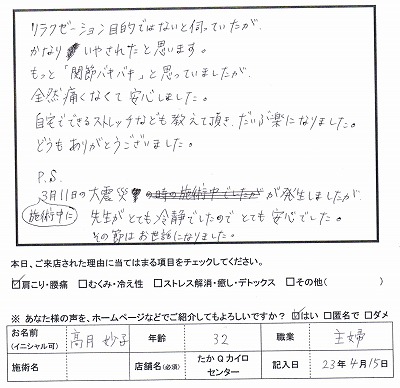 リラクゼーション目的ではないと伺っていたが、
かなりいやされたと思います。
もっと「関節バキバキ」と思っていましたが、
全然痛くなくて安心しました。
自宅でできるストレッチなども教えて頂き、だいぶ楽になりました。
どうもありがとうございました。
P.S.
3月11日の大震災の時の施術中でしたがが発生しましたが、
施術中に 先生がとても冷静でしたのでとても安心でした。
その節はお世話になりました。
本日、ご来店された理由に当てはまる項目をチェックしてください。
☑肩こり・腰痛 □むくみ・冷え性 □ストレス解消・癒し・デトックス □その他( )
※ あなた様の声を、ホームページなどでご紹介してもよろしいですか？ ☑はい □匿名で □ダメ
お名前 (イニシャル可) 高月 妙子 年齢 32 職業 主婦
施術名 店舗名(必須) たかQカイロセンター 記入日 23年4月15日